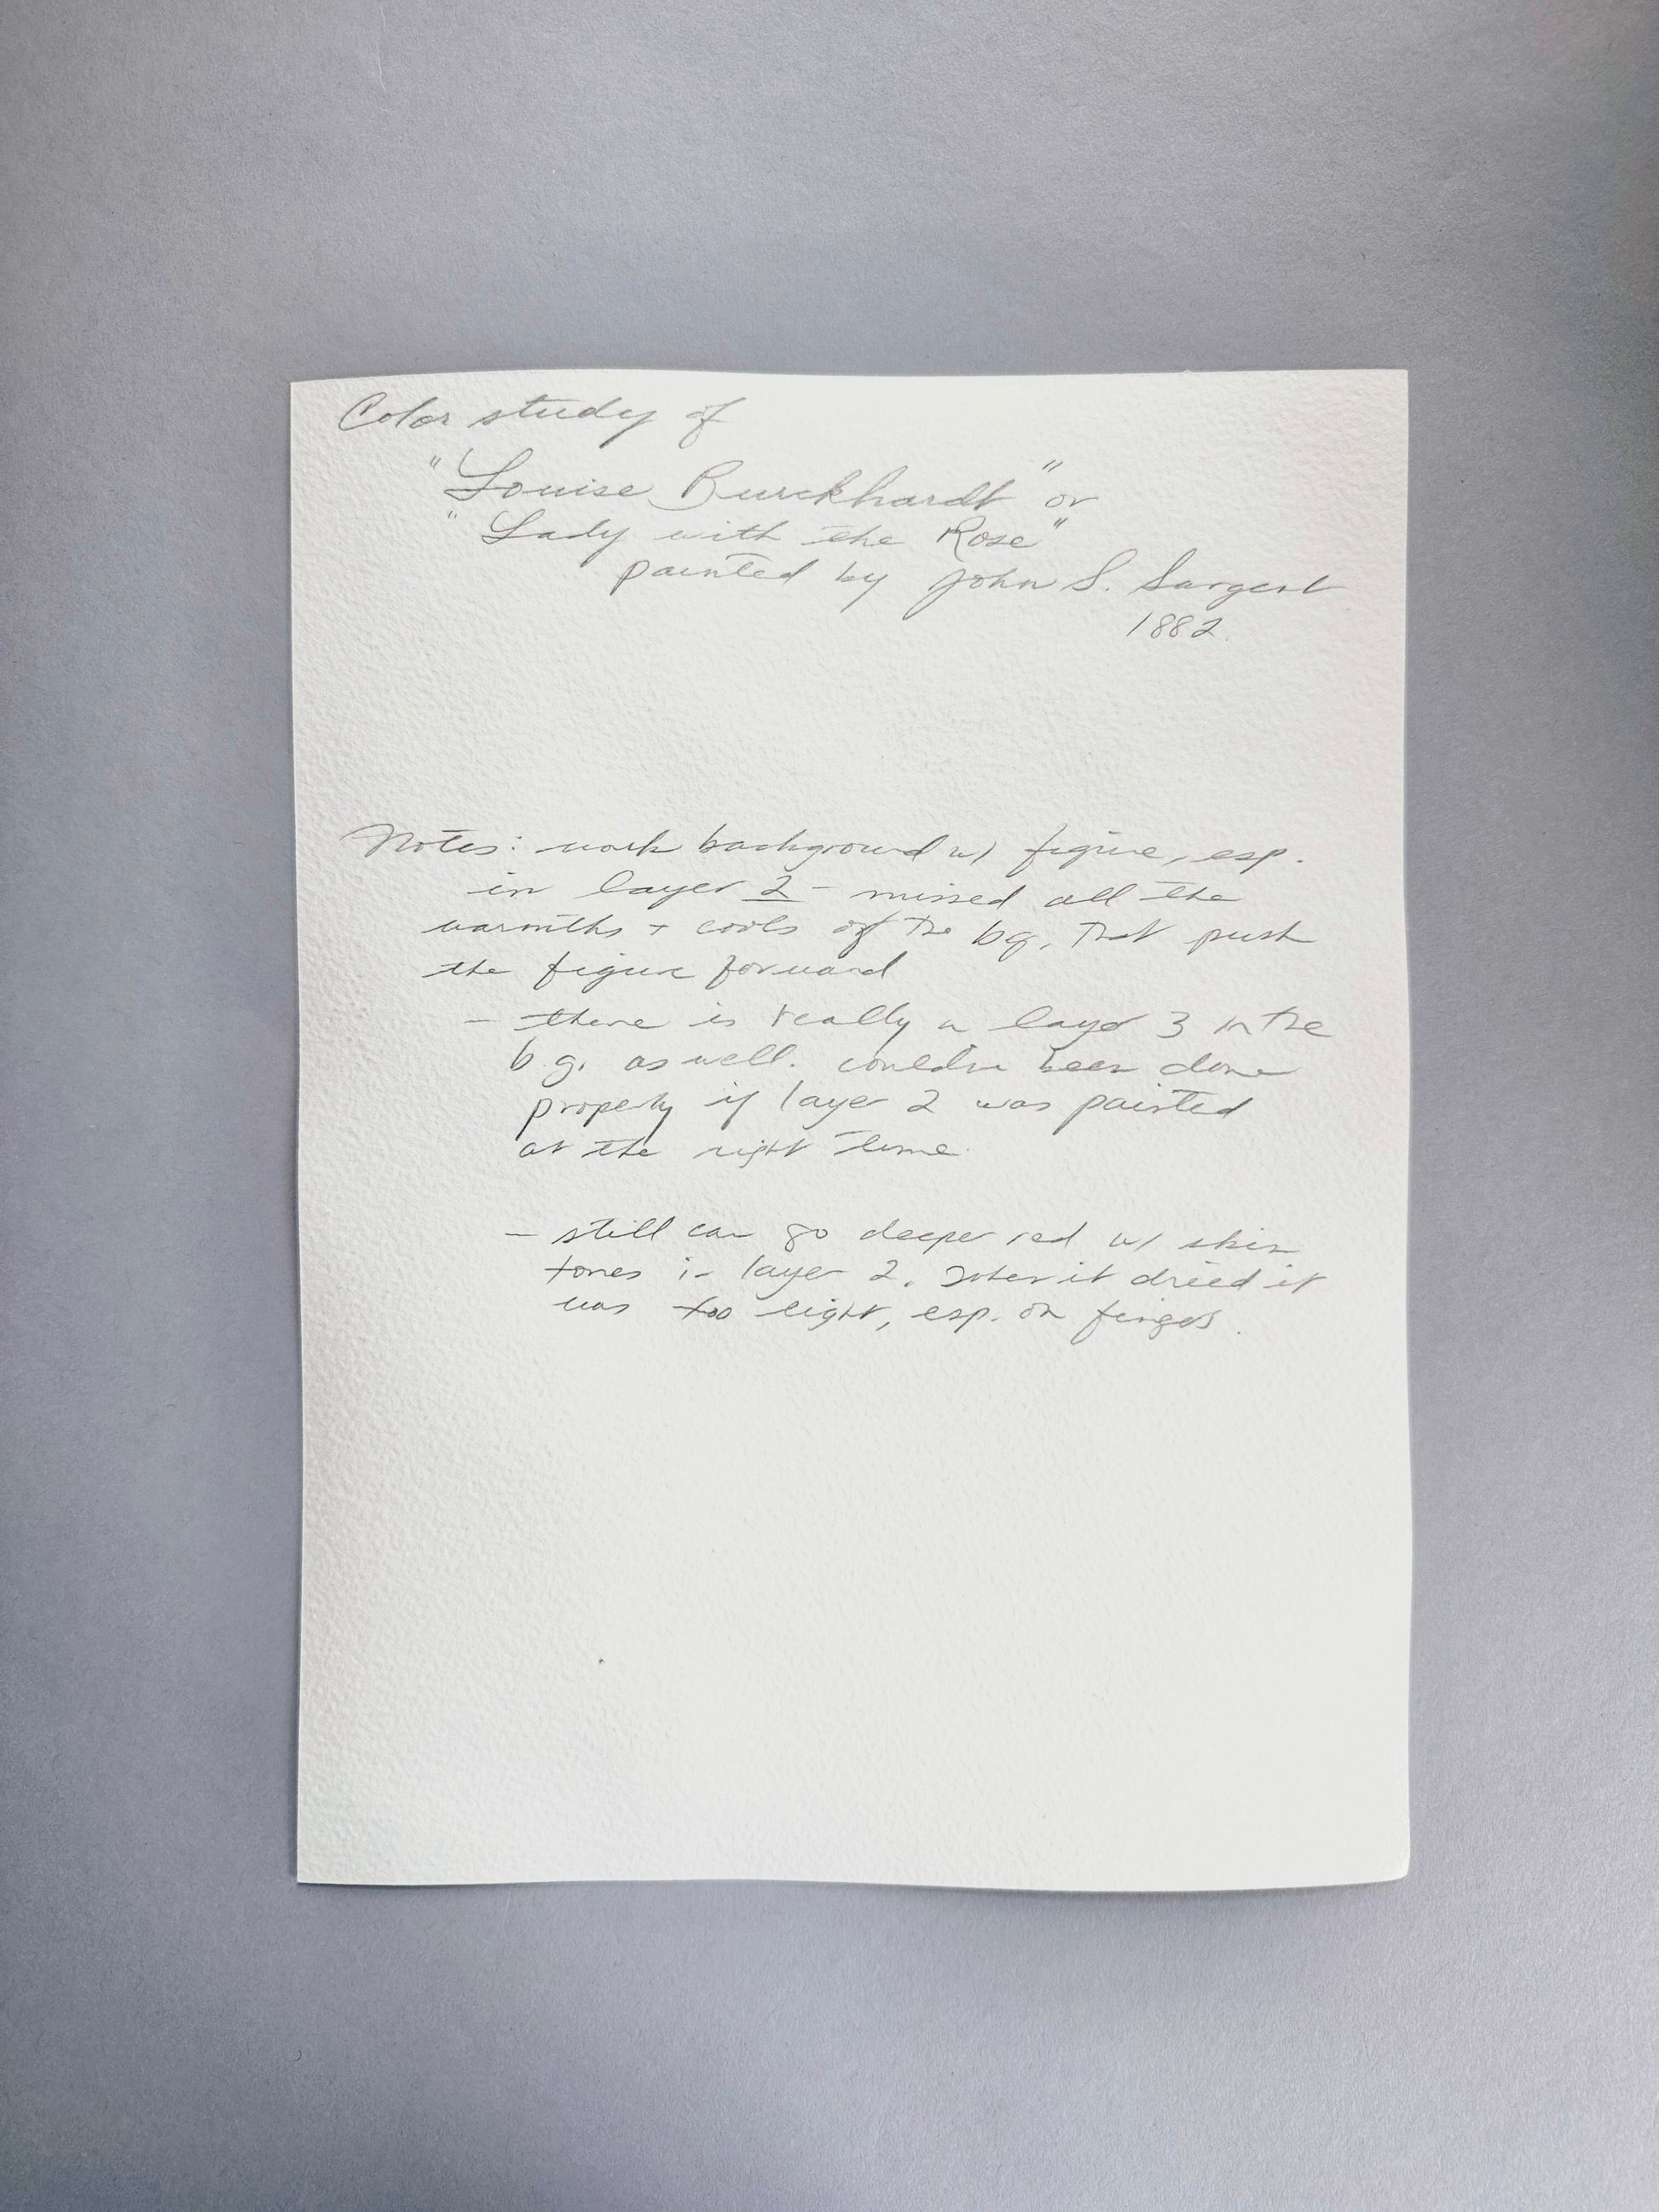 Color study of
"Louise Burckhardt" or
"Lady with the Rose"
painted by John S. Sargent
1882.
Notes: work background w/ figure, esp.
in layer 2 - missed all the
warmths + cools of the bg. that push
the figure forward
- there is really a layer 3 in the
b.g. as well. been done
properly if layer 2 was painted
at the right time.
- still can go deeper red w/ skin
tones in layer 2. it dried it
was too light, esp. on fingers.